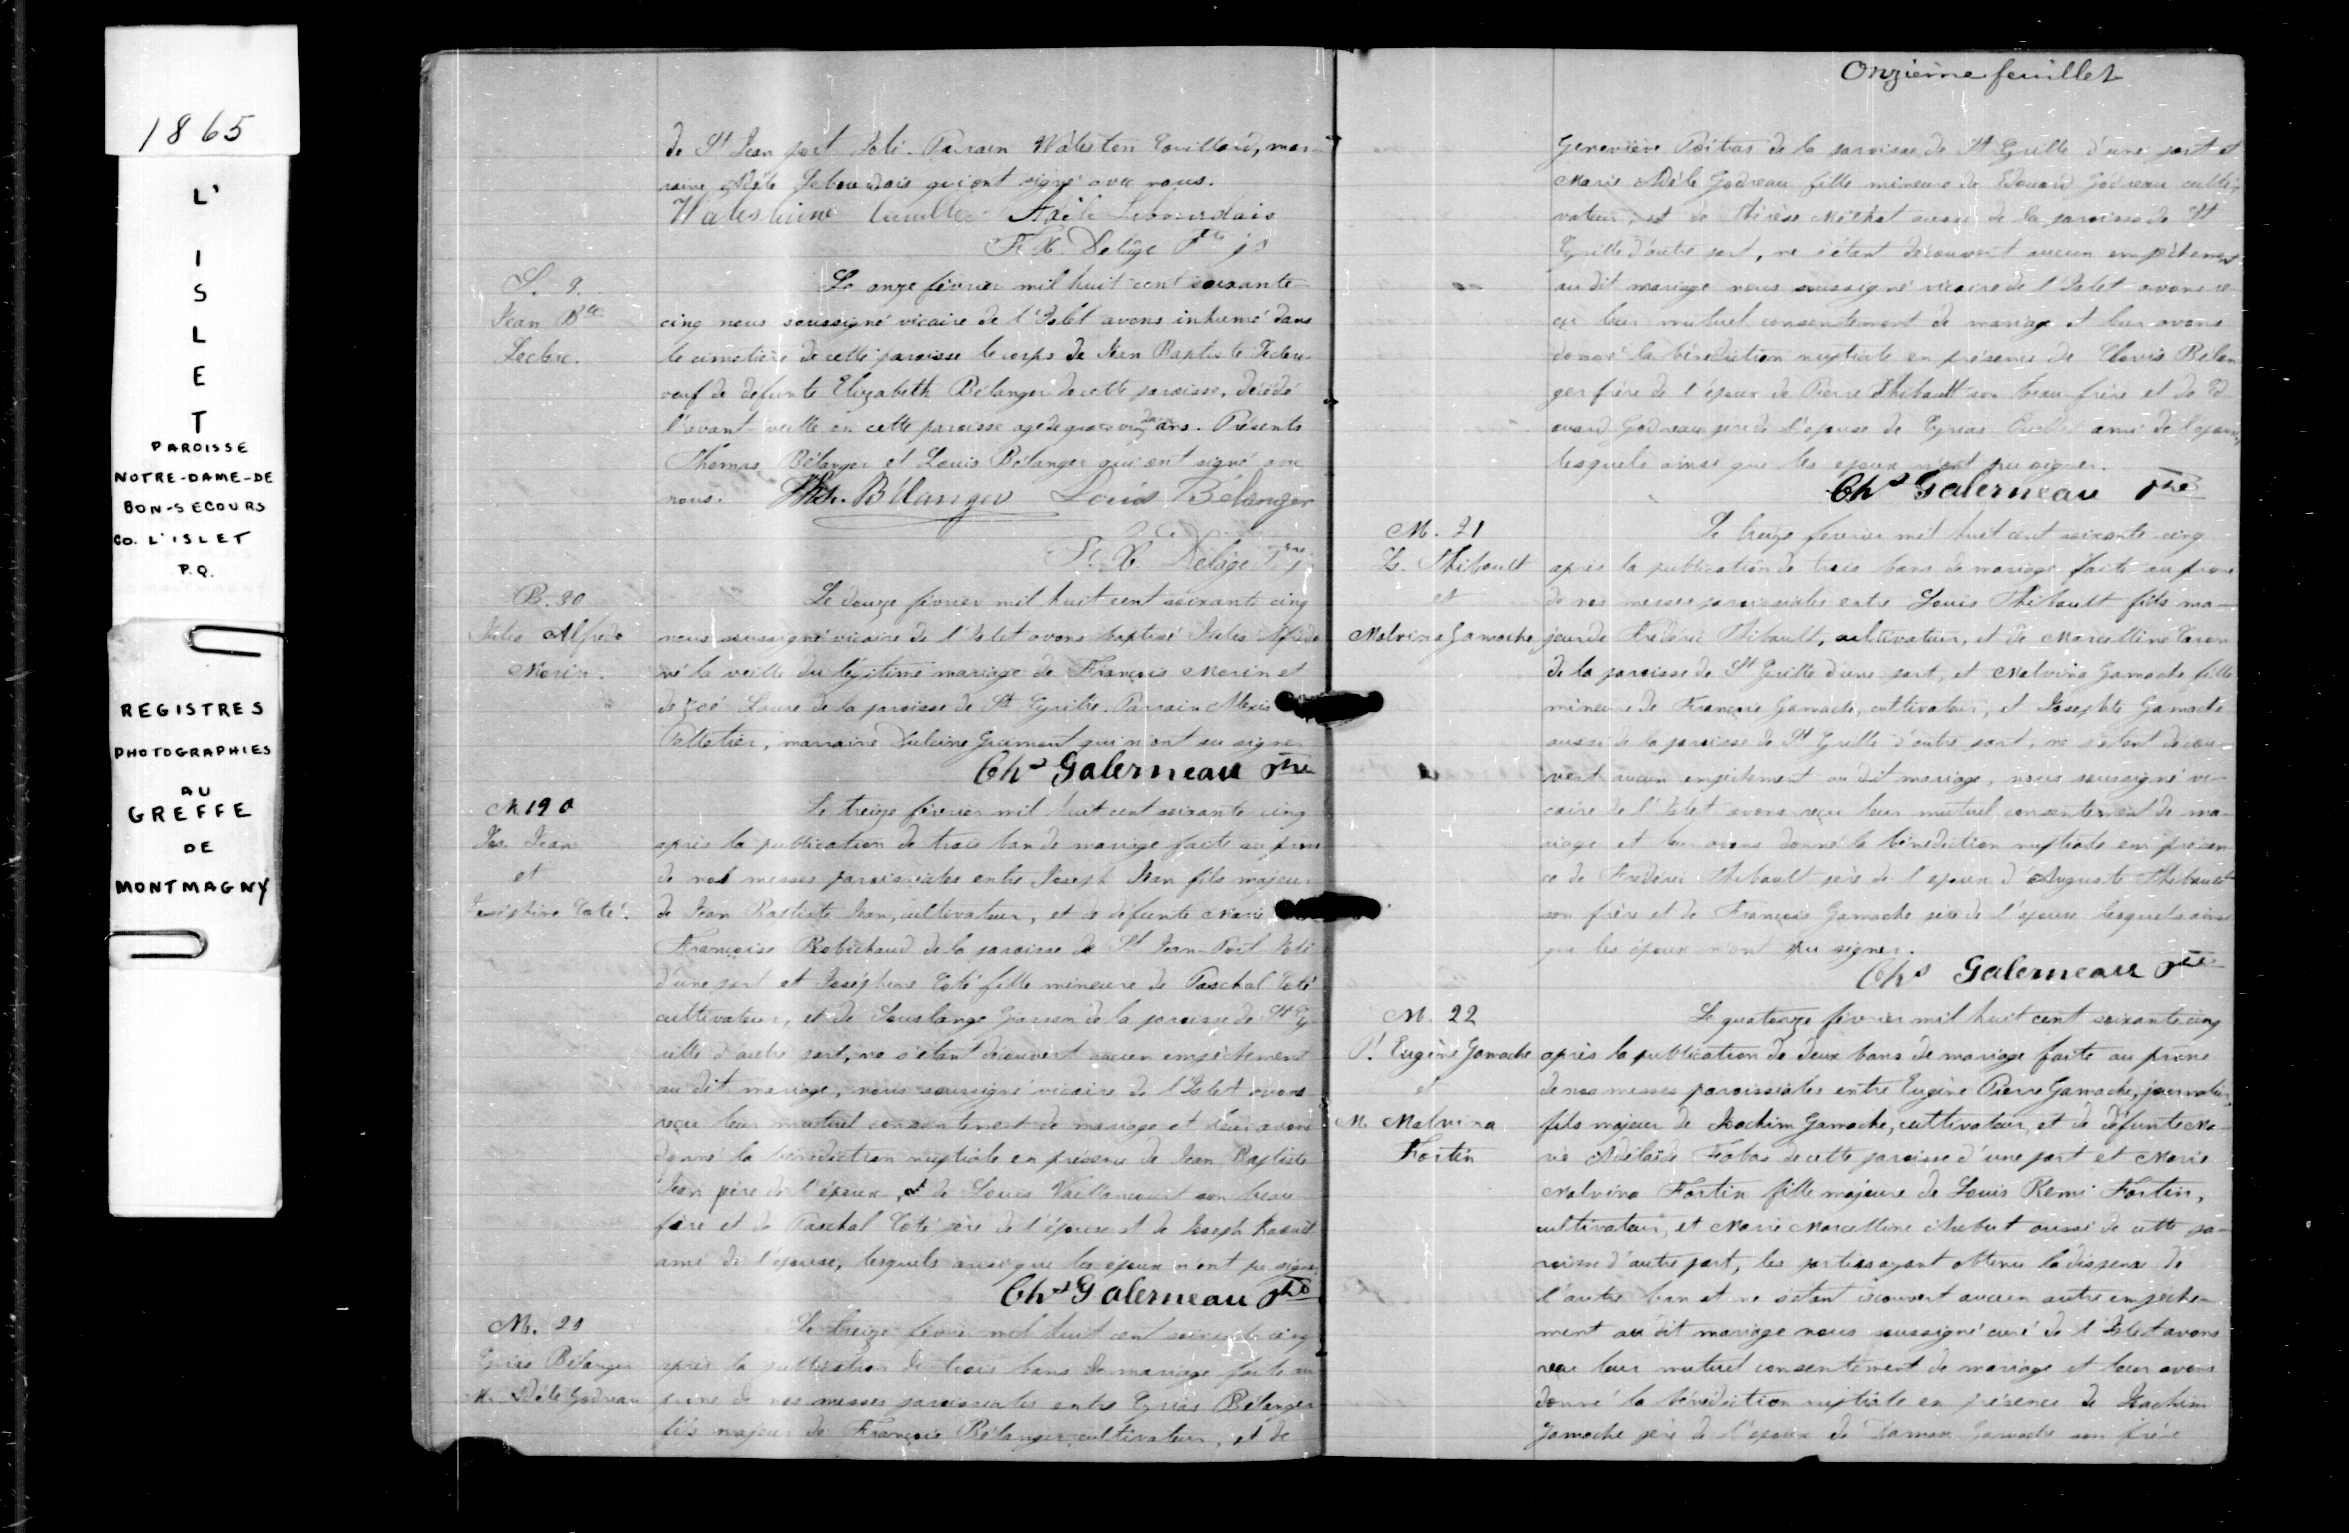 1865
L'
I
S
L
E
T
PAROISSE
NOTRE-DAME-DE
BON-SECOURS
CO. L'ISLET
P.Q.
REGISTRES
PHOTOGRAPHIES
AU
GREFFE
DE
MONTMAGNY
de St Jean port Joli. Parain mar-
raine Adèle Lebourdais qui ont signé avec nous.
Adèle Lebourdais
F. X. Delâge Ptre
S. 9.
Jean Bte
Leclerc.
Le onze février mil huit cent soixante
cinq nous soussigné vicaire de l'Islet avons inhumé dans
le cimetière de cette paroisse le corps de Jean Baptiste Leclerc
veuf de defunte Elizabeth Bélanger de cette paroisse, décédé
l'avant veille en cette paroisse agé de ans. Présents
Thomas Bélanger et Louis Bélanger qui ont signé avec
nous. Ths. Bélanger Louis Bélanger
F. X. Delâge Ptre
B. 20
Jules Alfred
Morin.
Le douze février mil huit cent soixante cinq
nous soussigné vicaire de l'Islet avons baptisé Jules Alfred
né la veille du légitime mariage de François Morin et
de Zoé de la paroisse de St Cyrille. Parrain Alexis
Pelletier, marraine qui n'ont su signer
Chs Galerneau Ptre
M 19
Jos. Jean
et
Joséphine Coté.
Le treize février mil huit cent soixante cinq
après la publication de trois ban de mariage faite au prône
de nos messes paroissiales entre Joseph Jean fils majeur
de Jean Baptiste Jean, cultivateur, et de défunte Marie
Françoise Robichaud de la paroisse de St Jean Port Joli
d'une part et Joséphine Coté fille mineure de Paschal Coté
cultivateur, et de Soulange de la paroisse de St Cy
rille d'autre part, ne s'étant découvert aucun empêchement
au dit mariage, nous soussigné vicaire de l'Islet avons
reçu leur mutuel consentement de mariage et leur avons
donné la bénédiction nuptiale en présence de Jean Baptiste
Jean père de l'époux, et de Louis Vaillancourt son beau
frère et de Paschal Coté père de l'épouse et de Joseph
ami de l'épouse, lesquels ainsi que les époux n'ont pu signer
Chs Galerneau Ptre
M. 20
Cyrias Bélanger
M. Adèle Godreau
Le treize février mil huit cent soixante cinq
après la publication de trois bans de mariage faite au
prône de nos messes paroissiales entre Cyrias Bélanger
fils majeur de François Bélanger, cultivateur, et de
Onzième feuillet
Geneviève Poitras de la paroisse de St Cyrille d'une part et
Marie Adèle Godreau fille mineure de Edouard Godreau culti-
vateur, et de Thérèse aussi de la paroisse de St
Cyrille d'autre part, ne s'étant découvert aucun empêchement
au dit mariage nous soussigné vicaire de l'Islet avons re-
çu leur mutuel consentement de mariage et leur avons
donné la bénédiction nuptiale en présence de Clovis Bélan
ger frère de l'époux de Pierre Thibault son beau frère et de Ed
ouard Godreau père de l'épouse de Cyrias ami de l'épouse,
lesquels ainsi que les epoux n'ont pu signer.
Chs Galerneau Ptre
M. 21
L. Thibault
et
Malvina Gamache
Le treize fevrier mil huit cent soixante cinq
après la publication de trois bans de mariage faite au prône
de nos messes paroissiales entre Louis Thibault fils ma-
jeur de Frédéric Thibault, cultivateur, et de Marcelline Caron
de la paroisse de St Cyrille d'une part, et Malvina Gamache fille
mineure de François Gamache, cultivateur, et Josephte Gamache
aussi de la paroisse de St Cyrille d'autre part, ne s'étant décou-
vert aucun empêchement au dit mariage, nous soussigné vi-
caire de l'Islet avons reçu leur mutuel consentement de ma-
riage et leur avons donné la bénédiction nuptiale en présen
ce de Frédéric Thibault père de l'epoux d'Auguste Thibault
son frère et de François Gamache père de l'épouse lesquels ainsi
que les époux n'ont su signer.
Chs Galerneau Ptre
M. 22
P. Eugène Gamache
et
M. Malvina
Fortin
Le quatorze février mil huit cent soixante cinq
après la publication de deux bans de mariage faite au prône
de nos messes paroissiales entre Eugène Pierre Gamache, journalier,
fils majeur de Joachim Gamache, cultivateur, et de défunte Ma-
rie Adélaïde de cette paroisse d'une part et Marie
Malvina Fortin fille majeure de Louis Remi Fortin,
cultivateur, et Marie Marcelline aussi de cette pa-
roisse d'autre part, les parties ayant obtenu la dispense de
l'autre ban et ne s'étant découvert aucun autre empêche-
ment au dit mariage nous soussigné curé de l'Islet avons
reçu leur mutuel consentement de mariage et leur avons
donné la bénédiction nuptiale en présence de Joachim
Gamache père de l'époux de Damase Gamache son frère